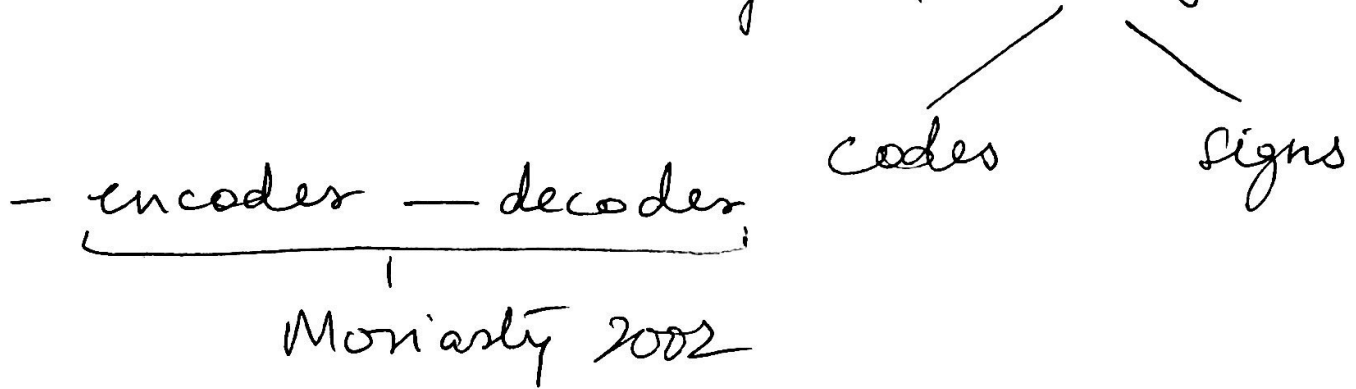 codes signs
- encoder — decoder
Moriarty 2002